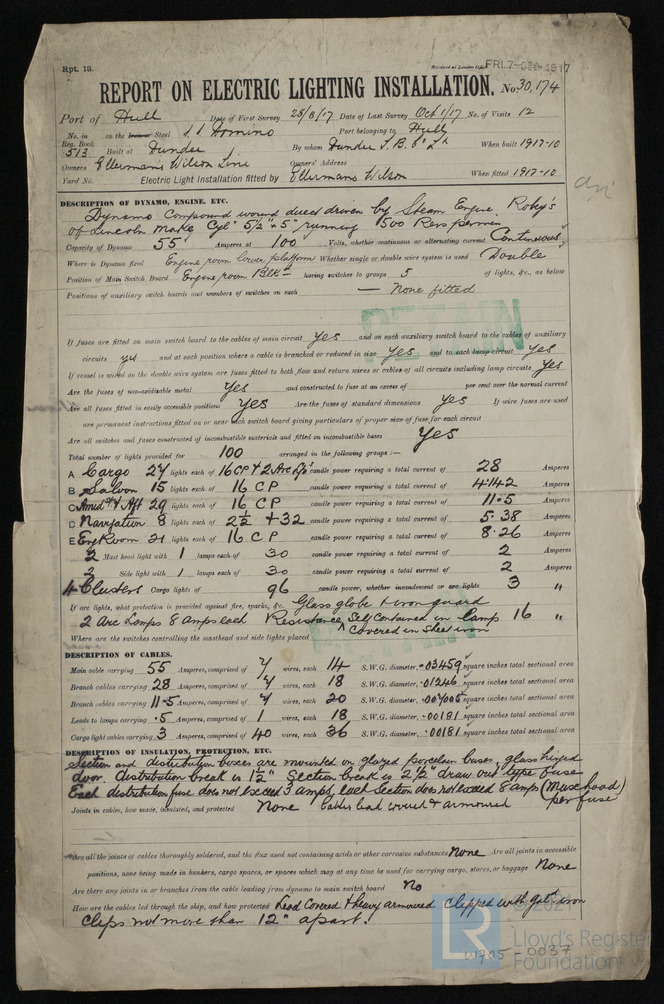 Rpt. 13.
Received at London Office FRI. 7-DEC. 1917
REPORT ON ELECTRIC LIGHTING INSTALLATION. No. 30,174
Port of Hull Date of First Survey 28/8/17 Date of Last Survey Oct 1/17 No. of Visits 12
No. in Reg. Book 513 on the Iron or Steel S.S. Domino Port belonging to Hull
Built at Dundee By whom Dundee S.B. Co Ld When built 1917-10
Owners Ellermans Wilson Line Owners' Address
Yard No. Electric Light Installation fitted by Ellermans Wilson When fitted 1917-10
DESCRIPTION OF DYNAMO, ENGINE, ETC.
Dynamo Compound wound direct driven by Steam Engine. Robey's
of Lincoln make Cyl 5½" x 5" running 500 Revs per min
Capacity of Dynamo 55 Amperes at 100 Volts, whether continuous or alternating current Continuous
Where is Dynamo fixed Engine room lower platform Whether single or double wire system is used Double
Position of Main Switch Board Engine room Blkhd having switches to groups 5 of lights, &c., as below
Positions of auxiliary switch boards and numbers of switches on each — None fitted
If fuses are fitted on main switch board to the cables of main circuit Yes and on each auxiliary switch board to the cables of auxiliary
circuits yes and at each position where a cable is branched or reduced in size Yes and to each lamp circuit Yes
If vessel is wired on the double wire system are fuses fitted to both flow and return wires or cables of all circuits including lamp circuits Yes
Are the fuses of non-oxidizable metal Yes and constructed to fuse at an excess of per cent over the normal current
Are all fuses fitted in easily accessible positions Yes Are the fuses of standard dimensions Yes If wire fuses are used
are permanent instructions fitted on or near each switch board giving particulars of proper size of fuse for each circuit
Are all switches and fuses constructed of incombustible materials and fitted on incombustible bases Yes
Total number of lights provided for 100 arranged in the following groups :—
A Cargo 27 lights each of 16 CP & 2 Arc Lps candle power requiring a total current of 28 Amperes
B Saloon 15 lights each of 16 CP candle power requiring a total current of 4.142 Amperes
C Amid & Aft 29 lights each of 16 CP candle power requiring a total current of 11.5 Amperes
D Navigation 8 lights each of 2½ & 32 candle power requiring a total current of 5.38 Amperes
E Eng Room 21 lights each of 16 CP candle power requiring a total current of 8.26 Amperes
2 Mast head light with 1 lamps each of 30 candle power requiring a total current of 2 Amperes
2 Side light with 1 lamps each of 30 candle power requiring a total current of 2 Amperes
4 Clusters Cargo lights of 96 candle power, whether incandescent or arc lights 3 "
If arc lights, what protection is provided against fire, sparks, &c. Glass globe & iron guard
2 Arc Lamps 8 amps each Resistance, Self Contained in lamp 16 "
covered in sheet iron
Where are the switches controlling the masthead and side lights placed
DESCRIPTION OF CABLES.
Main cable carrying 55 Amperes, comprised of 7 wires, each 14 S.W.G. diameter, .03459 square inches total sectional area
Branch cables carrying 28 Amperes, comprised of 7 wires, each 18 S.W.G. diameter, .01246 square inches total sectional area
Branch cables carrying 11.5 Amperes, comprised of 7 wires, each 20 S.W.G. diameter, .007005 square inches total sectional area
Leads to lamps carrying .5 Amperes, comprised of 1 wires, each 18 S.W.G. diameter, .00181 square inches total sectional area
Cargo light cables carrying 3 Amperes, comprised of 40 wires, each 36 S.W.G. diameter, .00181 square inches total sectional area
DESCRIPTION OF INSULATION, PROTECTION, ETC.
Section and distribution boxes are mounted on glazed porcelain bases, glass hinged
door. distribution break is 1½" Section break is 2½" draw out type fuse
Each distribution fuse does not exceed 3 amps, each Section does not exceed 8 amps (
per fuse
Joints in cables, how made, insulated, and protected None Cables lead covered & armoured
Are all the joints of cables thoroughly soldered, and the flux used not containing acids or other corrosive substances None Are all joints in accessible
positions, none being made in bunkers, cargo spaces, or spaces which may at any time be used for carrying cargo, stores, or baggage None
Are there any joints in or branches from the cable leading from dynamo to main switch board No
How are the cables led through the ship, and how protected Lead Covered & heavy armoured clipped with galvd iron
clips not more than 12" apart.
© 2021
LR
Lloyd's Register
Foundation
W905-0037